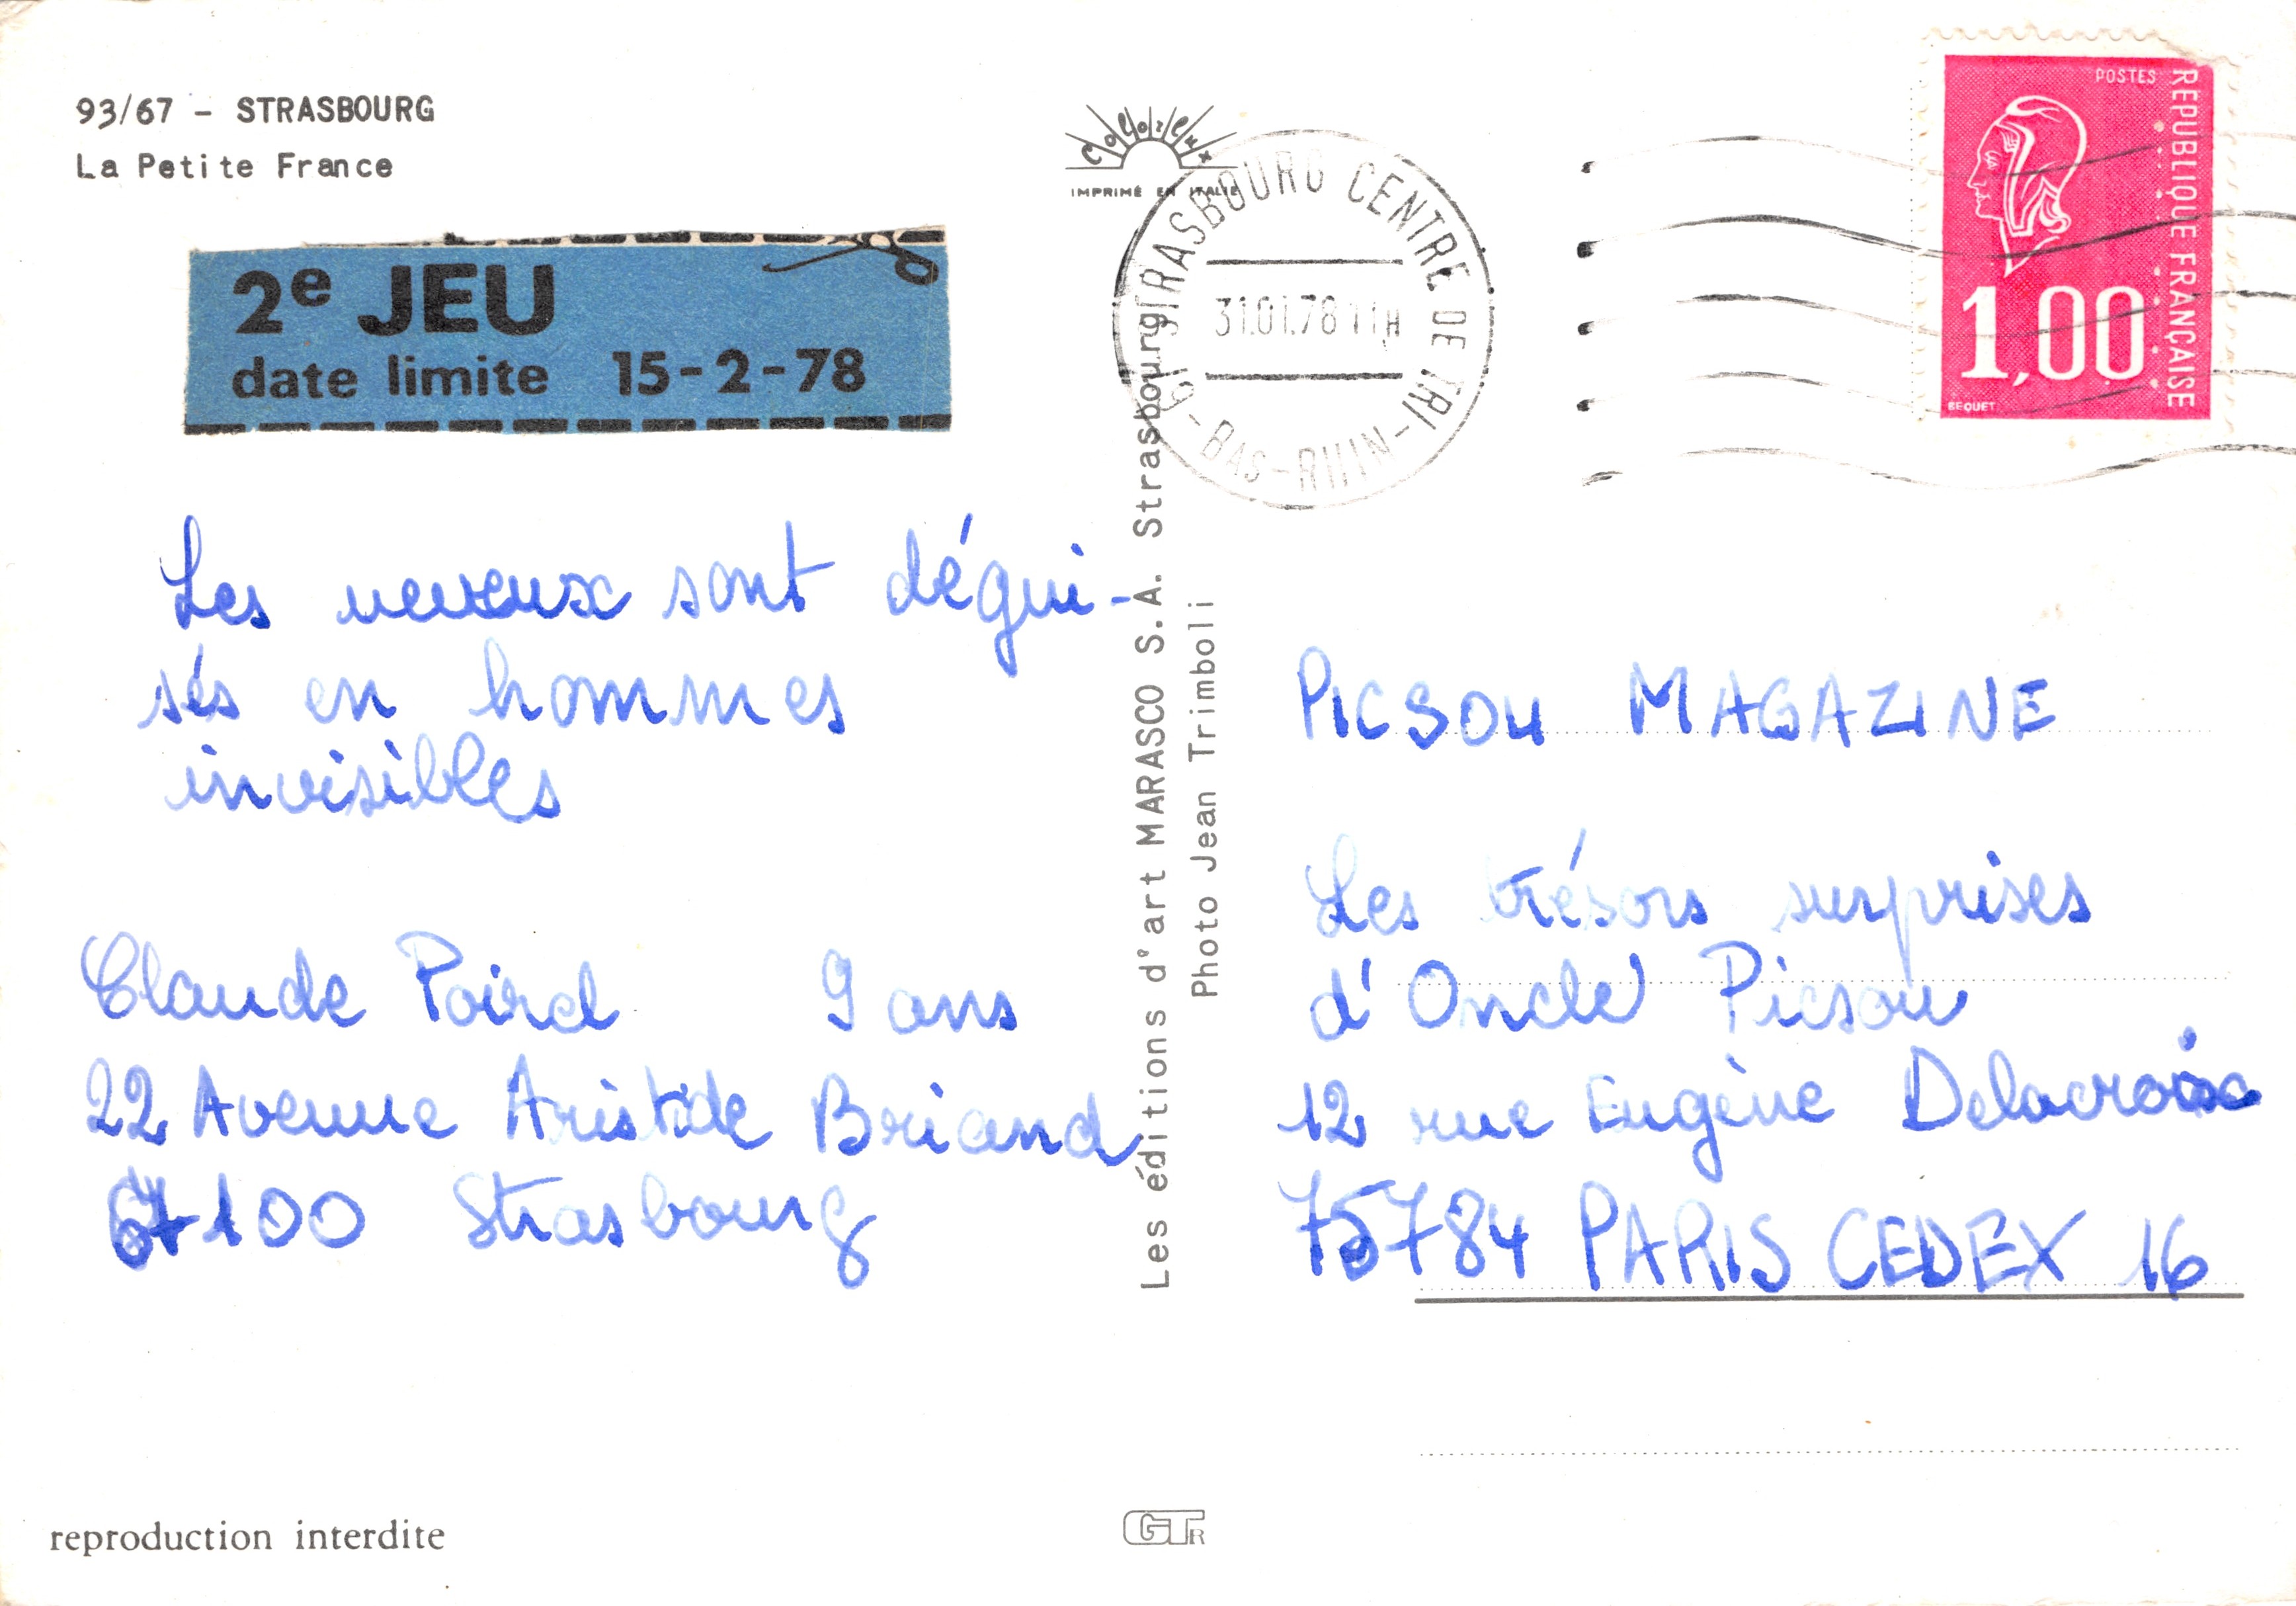 93/67 - STRASBOURG
La Petite France
2e JEU
date limite 15-2-78
Les neveux sont dégui-
sés en hommes
invisibles
Claude Poirel 9 ans
22 Avenue Aristide Briand
67100 Strasbourg
reproduction interdite
Colorlux
IMPRIMÉ EN ITALIE
Les éditions d'art MARASCO S.A. Strasbourg
Photo Jean Trimboli
GTR
67 STRASBOURG CENTRE DE TRI
31.01.78 11H
- BAS-RHIN -
POSTES
REPUBLIQUE FRANÇAISE
1,00
BEQUET
PICSOU MAGAZINE
Les trésors surprises
d'Oncle Picsou
12 rue Eugène Delacroix
75784 PARIS CEDEX 16